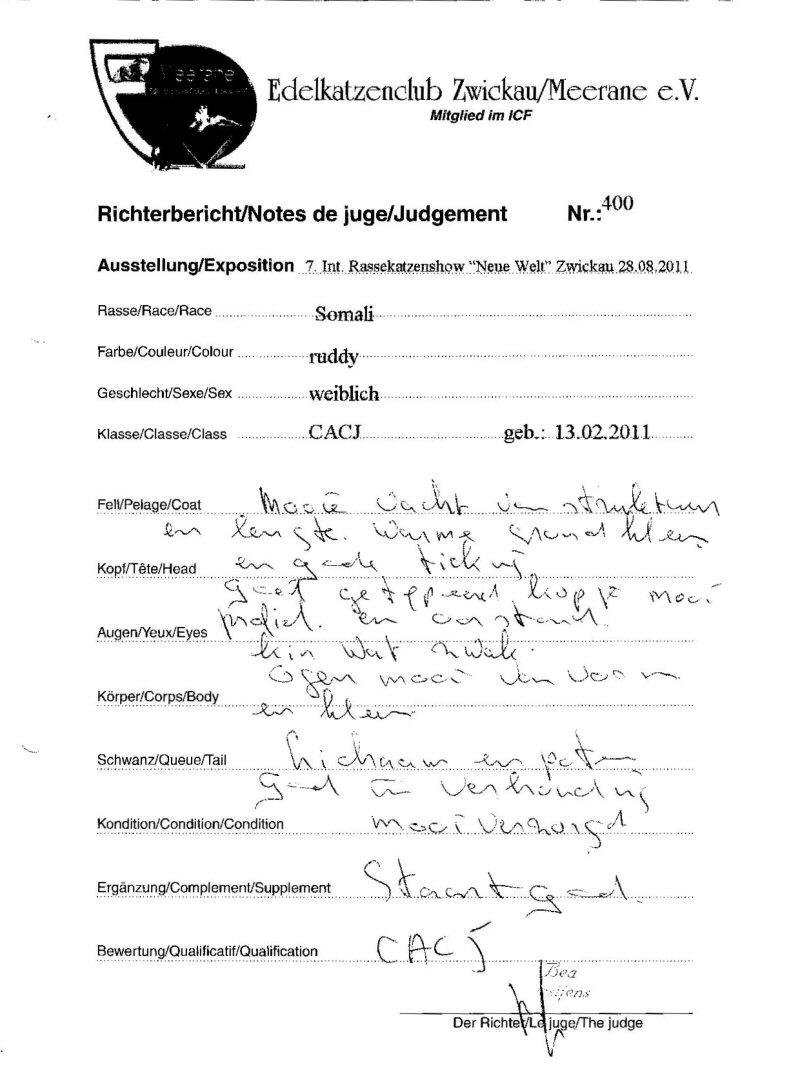 Meerane
Edelkatzenclub Zwickau/Meerane e.V.
Mitglied im ICF
Richterbericht/Notes de juge/Judgement Nr.: 400
Ausstellung/Exposition 7. Int. Rassekatzenshow "Neue Welt" Zwickau 28.08.2011
Rasse/Race/Race Somali
Farbe/Couleur/Colour ruddy
Geschlecht/Sexe/Sex weiblich
Klasse/Classe/Class CACJ geb.: 13.02.2011
Fell/Pelage/Coat Mooie vacht van struktuur
en lengte. Warme grond kleur
Kopf/Tête/Head en goede ticking
goed getypeerd kopje mooi
profiel. en oorstand.
Augen/Yeux/Eyes
kin wat zwak.
Ogen mooi van vorm
Körper/Corps/Body en kleur
Schwanz/Queue/Tail Lichaam en poten
goed in verhouding
Kondition/Condition/Condition mooi verzorgd
Ergänzung/Complement/Supplement Staart goed.
Bewertung/Qualificatif/Qualification CACJ
Bea
Der Richter/Le juge/The judge